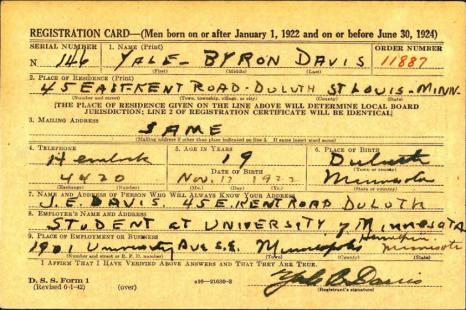 REGISTRATION CARD—(Men born on or after January 1, 1922 and on or before June 30, 1924)
SERIAL NUMBER 1. NAME (Print) ORDER NUMBER
N 146 YALE - BYRON DAVIS 11887
(First) (Middle) (Last)
2. PLACE OF RESIDENCE (Print)
45 EAST KENT ROAD - DULUTH ST LOUIS - MINN.
(Number and street) (Town, township, village, or city) (County) (State)
[THE PLACE OF RESIDENCE GIVEN ON THE LINE ABOVE WILL DETERMINE LOCAL BOARD
JURISDICTION; LINE 2 OF REGISTRATION CERTIFICATE WILL BE IDENTICAL]
3. MAILING ADDRESS
SAME
(Mailing address if other than place indicated on line 2. If same insert word same)
4. TELEPHONE 5. AGE IN YEARS 6. PLACE OF BIRTH
Hemlock 19 Duluth
DATE OF BIRTH (Town or county)
4420 Nov. 17 1922 Minnesota
(Exchange) (Number) (Mo.) (Day) (Yr.) (State or country)
7. NAME AND ADDRESS OF PERSON WHO WILL ALWAYS KNOW YOUR ADDRESS
J.E. DAVIS. 45 E. KENT ROAD DULUTH
8. EMPLOYER'S NAME AND ADDRESS
STUDENT AT UNIVERSITY of MINNESOTA
9. PLACE OF EMPLOYMENT OR BUSINESS
University Ave S.E. Minneapolis Hennepin Minnesota
(Number and street or R. F. D. number) (Town) (County) (State)
I AFFIRM THAT I HAVE VERIFIED ABOVE ANSWERS AND THAT THEY ARE TRUE.
D. S. S. Form 1 Yale B. Davis
(Revised 6-1-42) (over) 16—21630-2 (Registrant's signature)